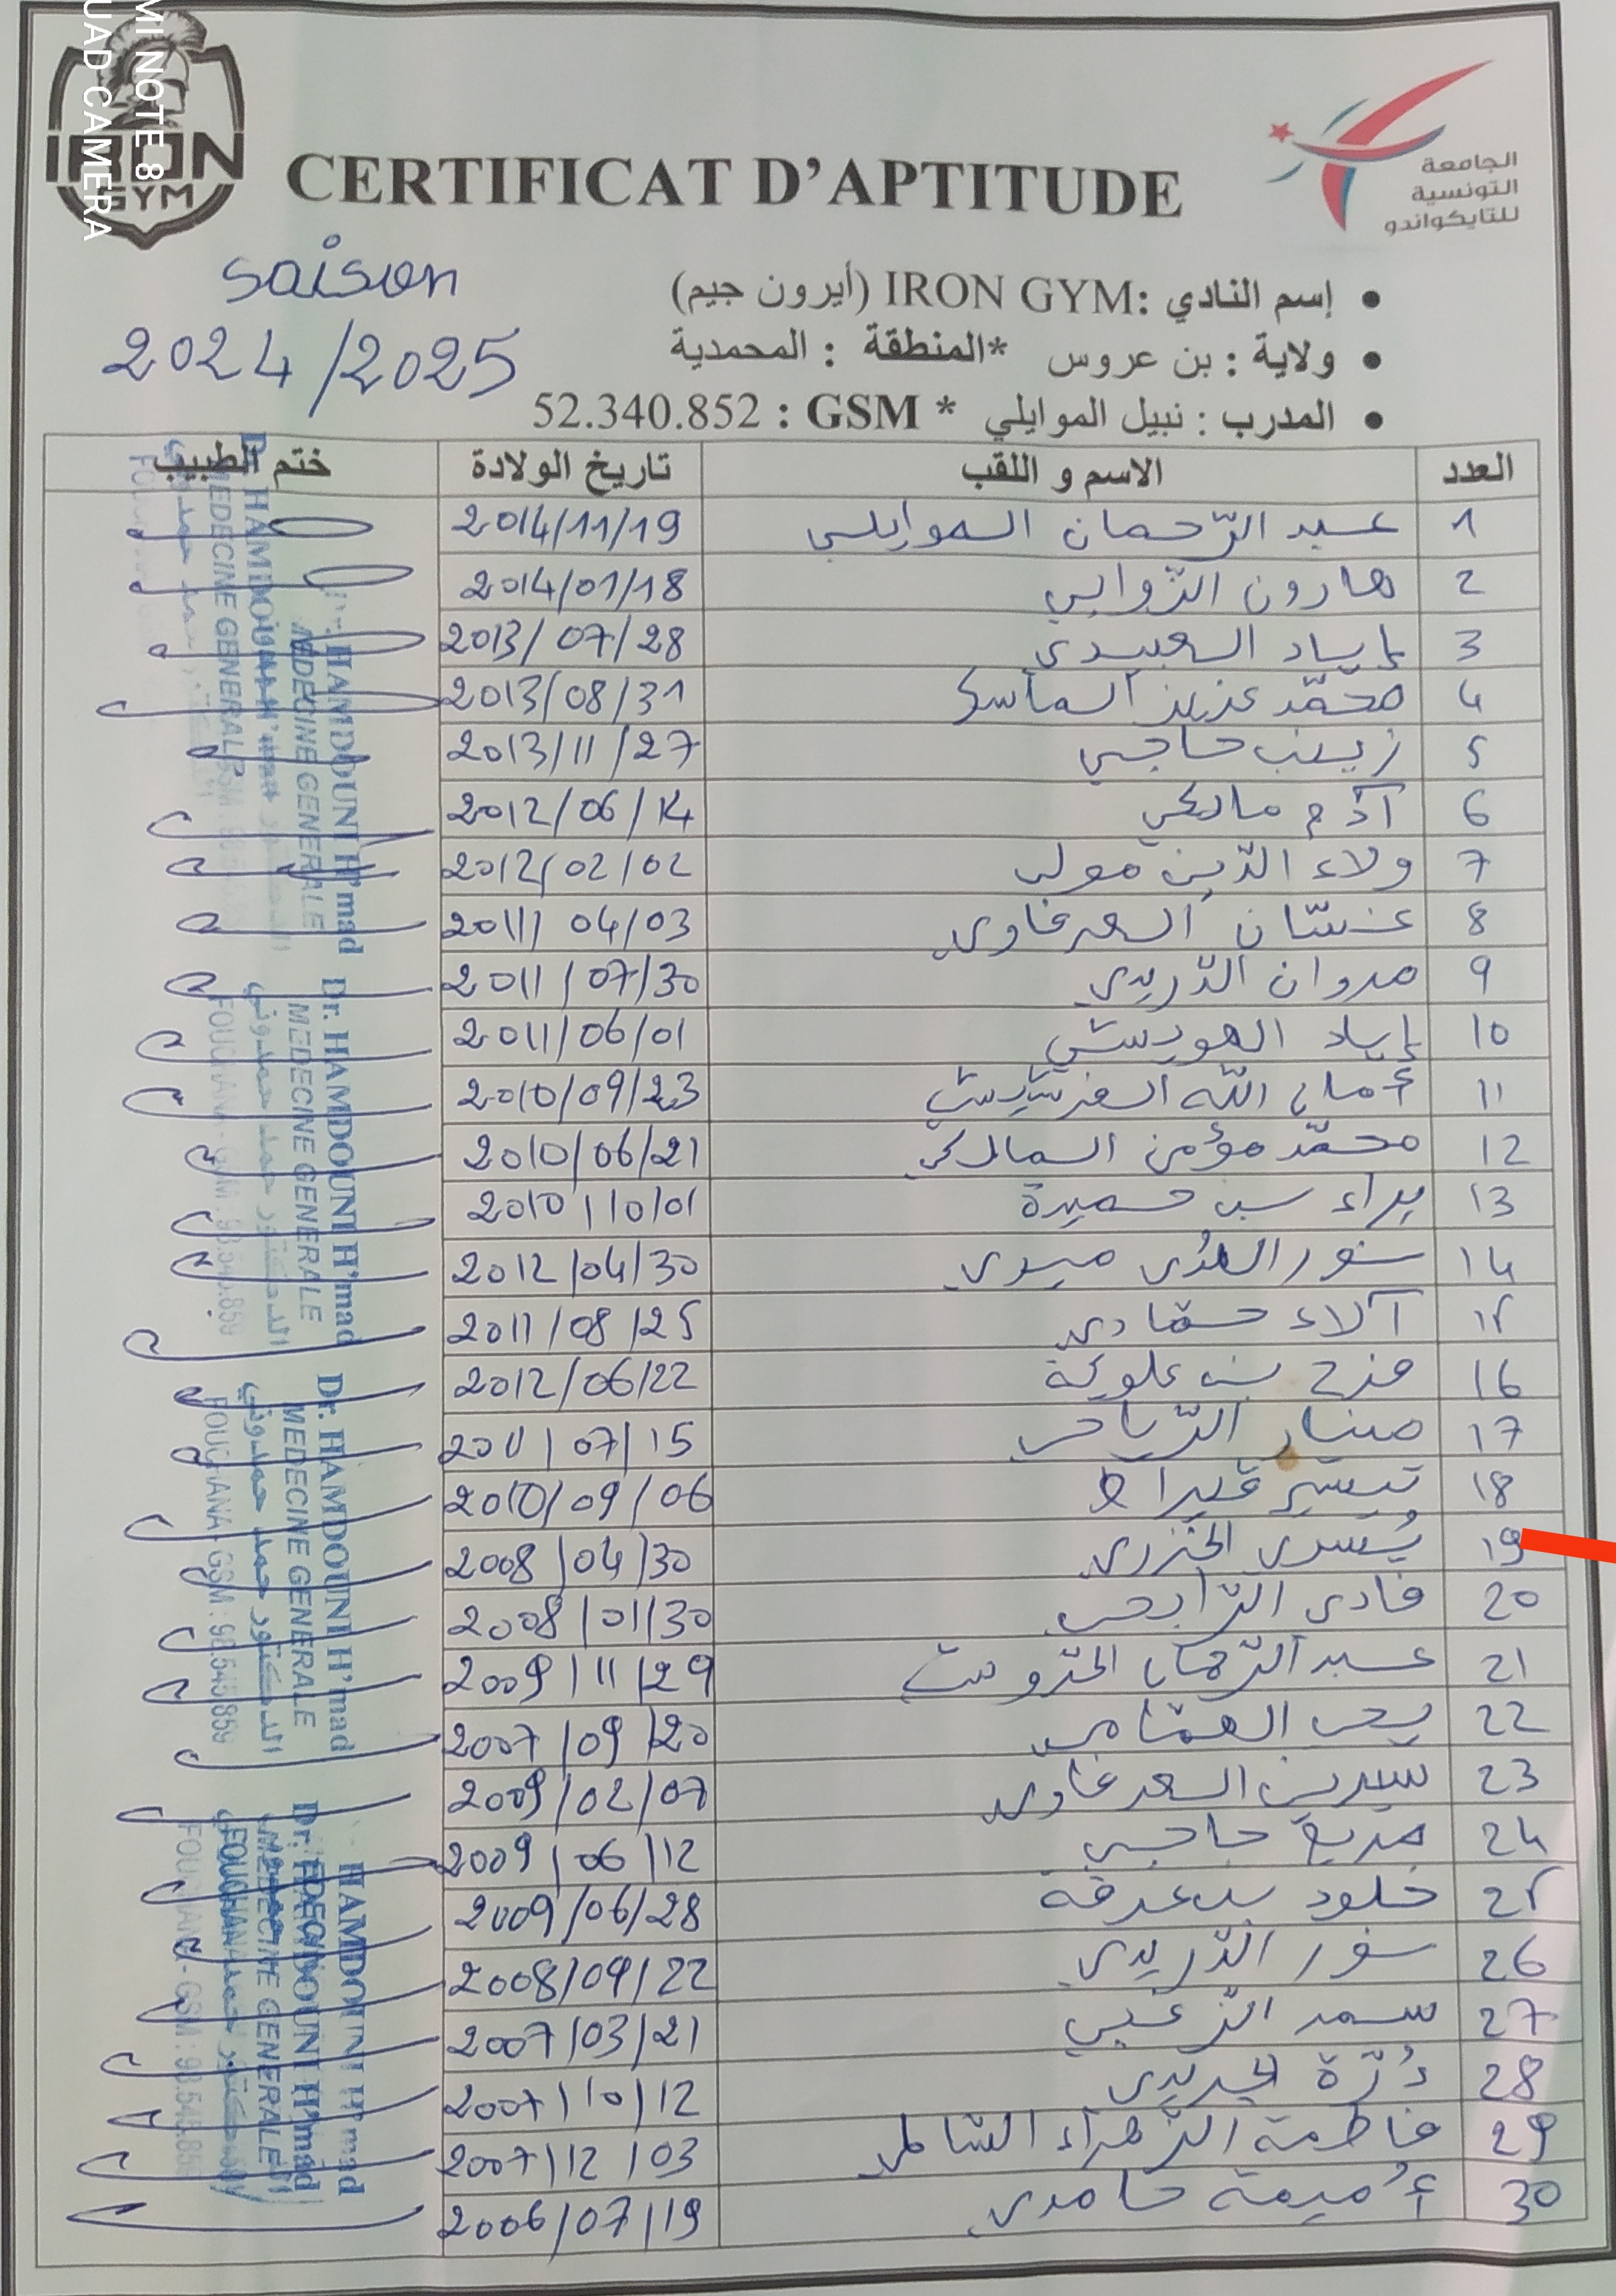 MI NOTE 8
UAD CAMERA
IRON
GYM
CERTIFICAT D'APTITUDE
الجامعة
التونسية
للتايكواندو
saison
2024/2025
• إسم النادي :IRON GYM (أيرون جيم)
• ولاية : بن عروس *المنطقة : المحمدية
• المدرب : نبيل الموايلي * GSM : 52.340.852
العدد الاسم و اللقب تاريخ الولادة ختم الطبيب
1 عبد الرّحمان الموايلي 2014/11/19
2 هارون الزوابي 2014/01/18
3 إياد العبيدي 2013/07/28
4 محمّد عزيز 2013/08/31
5 زينب حاجي 2013/11/27
6 آدم مالكي 2012/06/14
7 ولاء الدّين مولى 2012/02/02
8 غسّان السعرفاوي 2011/04/03
9 مروان الدّريدي 2011/07/30
10 إياد الهويشي 2011/06/01
11 أمان الله 2010/09/23
12 محمّد مؤمن المالكي 2010/06/21
13 براء بن حميدة 2010/10/01
14 نور الهدى ميموني 2012/04/30
15 آلاء حمّادي 2011/08/25
16 فرح بن علوية 2012/06/22
17 منار الرّياحي 2011/07/15
18 تيسير قيراط 2010/09/06
19 يُسرى الخزري 2008/04/30
20 فادي الرّابحي 2008/01/30
21 عبد الرّحمان 2009/11/29
22 يحي الهمّامي 2007/09/20
23 سيرين السعرفاوي 2009/02/07
24 مريم حاجي 2009/06/12
25 خلود بن عرفة 2009/06/28
26 نور الدّريدي 2008/09/22
27 سمر الزغبي 2007/03/21
28 دُرّة الجريدي 2007/10/12
29 فاطمة الزّهراء الشّاطر 2007/12/03
30 أُميمة حامدي 2006/07/19
Dr. HAMDOUNI H'mad
MEDECINE GENERALE
الدكتور حمد حمدوني
FOUCHANA - GSM : 98.545.859